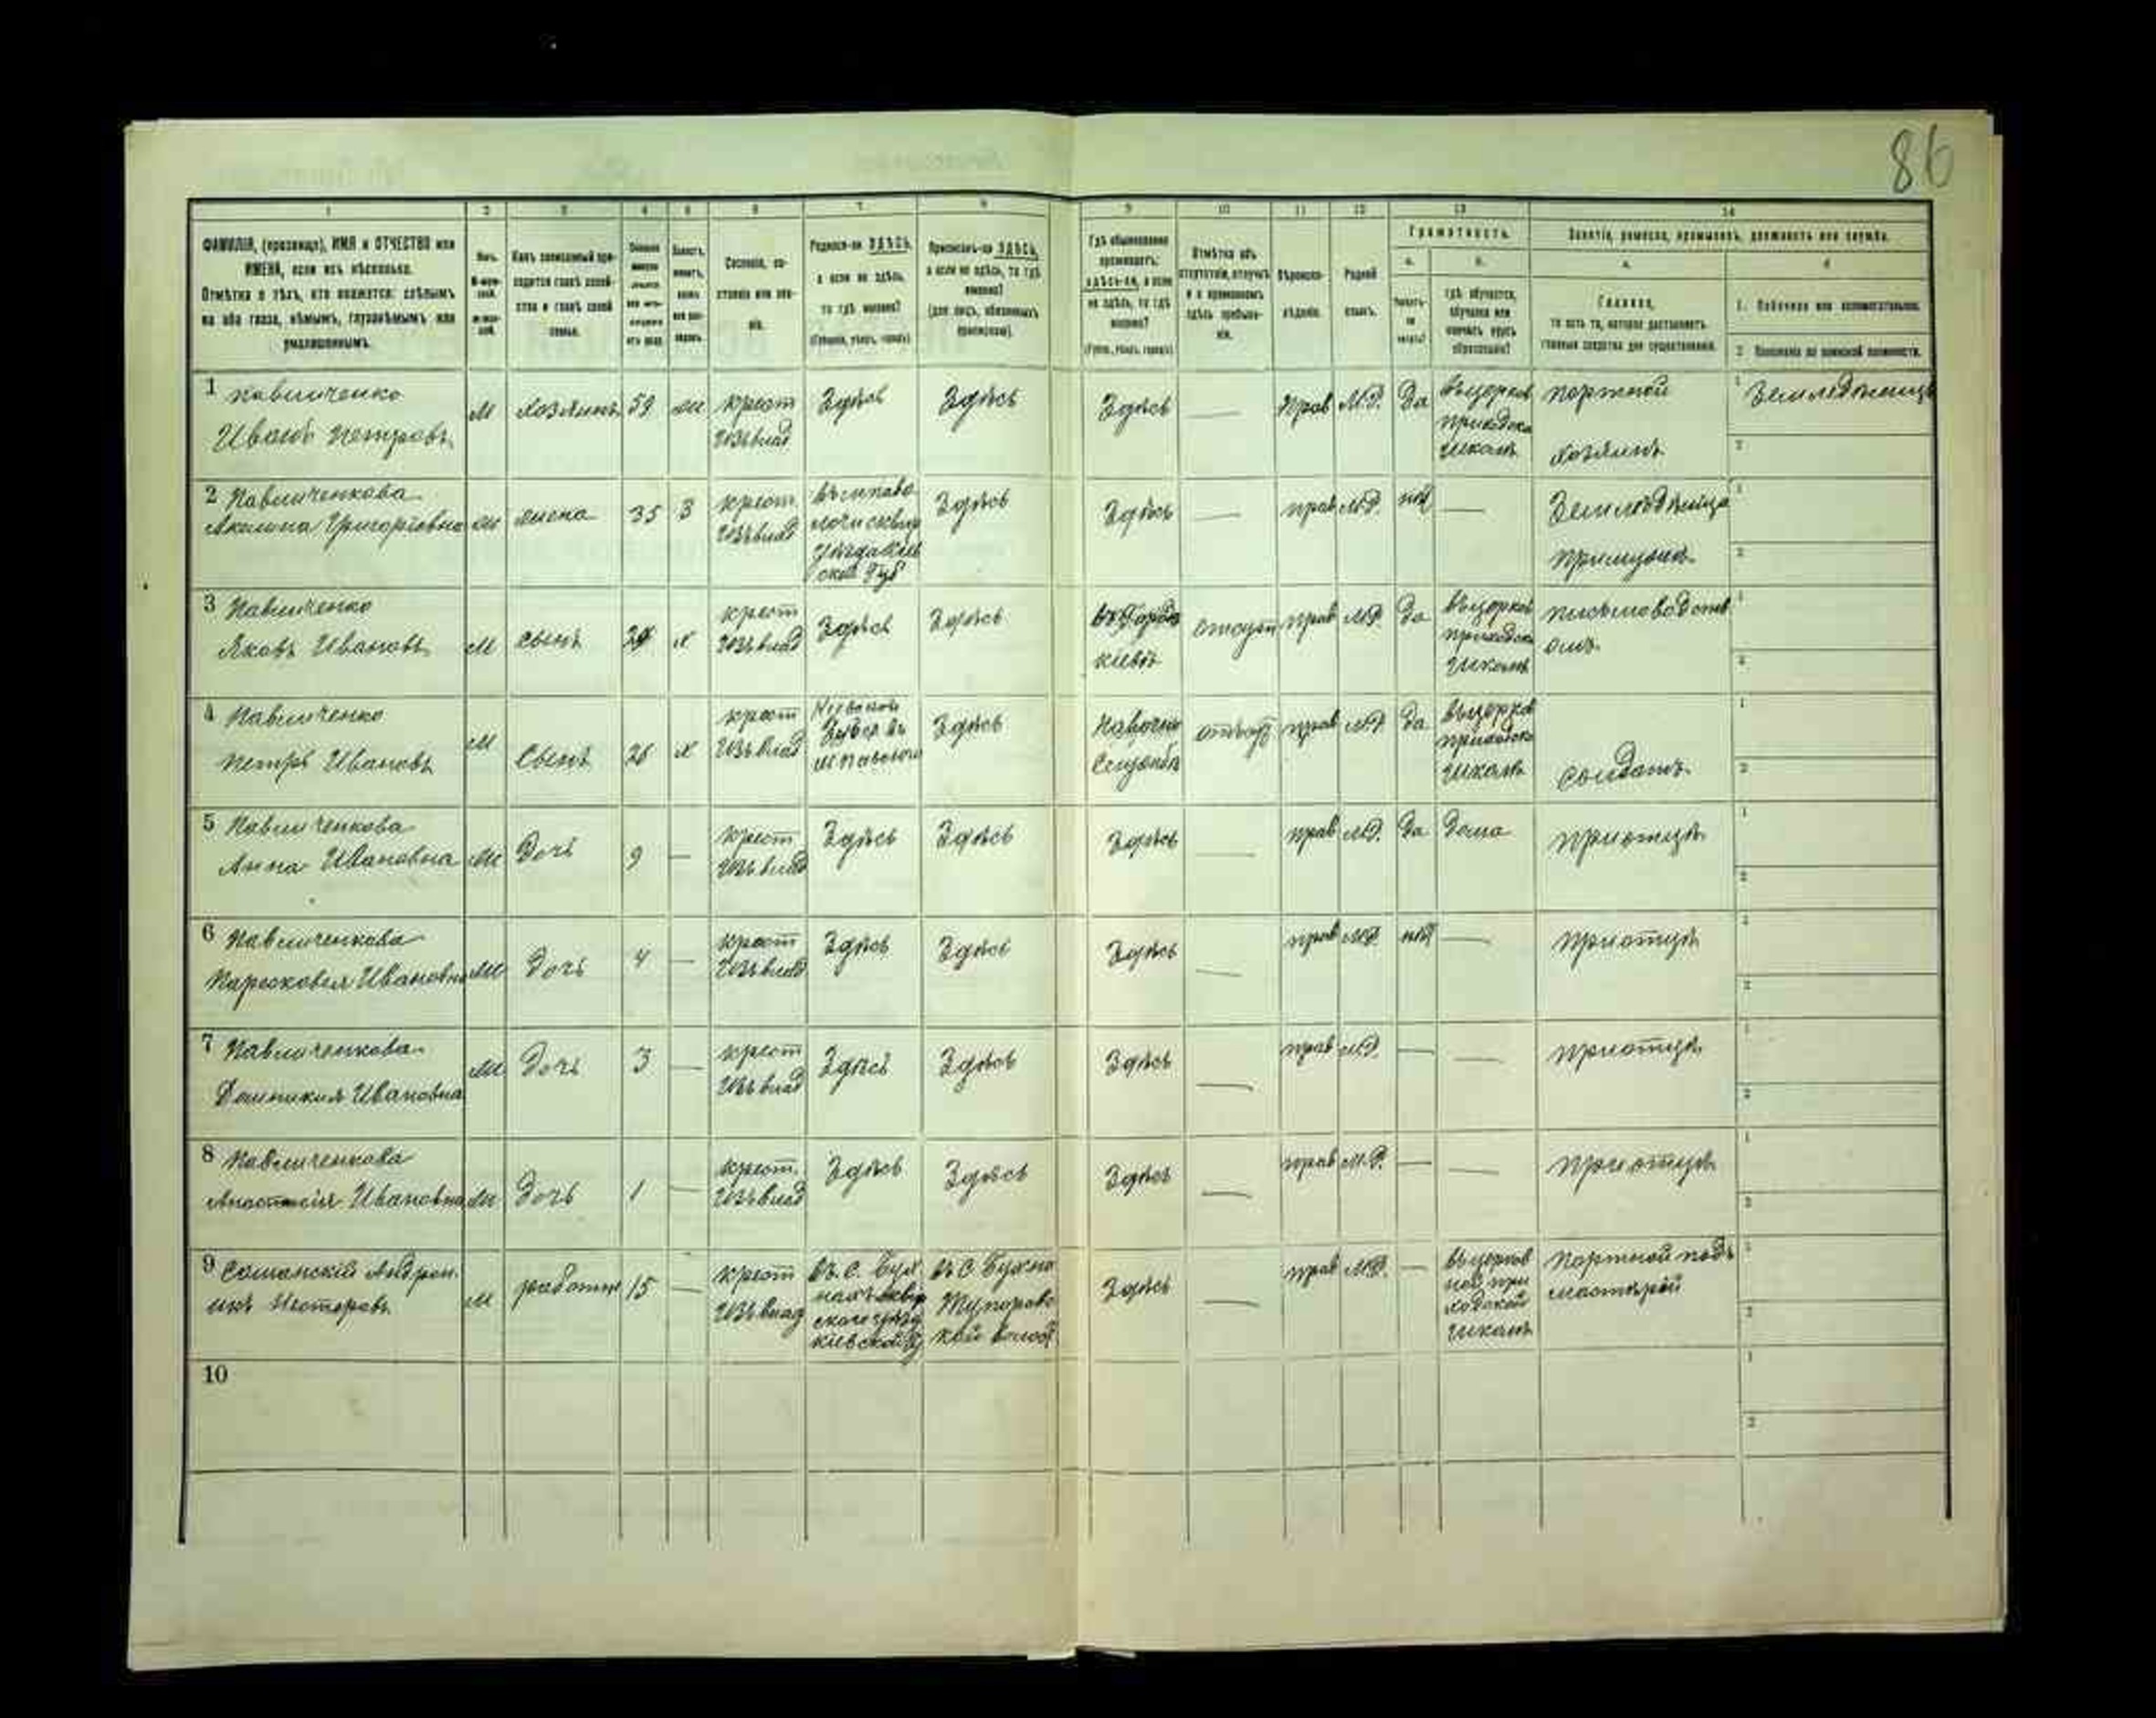 86
1 2 3 4 5 6 7 8 9 10 11 12 13 14
ФАМИЛІЯ, (прозвище), ИМЯ и ОТЧЕСТВО или
ИМЕНА, если ихъ нѣсколько.
Отмѣтка о тѣхъ, кто окажется: слѣпымъ
на оба глаза, нѣмымъ, глухонѣмымъ или
умалишеннымъ.
Какъ записанный при-
ходится главѣ хозяй-
ства и главѣ своей
семьи.
Сословіе, со-
стояніе или зва-
ніе.
Родился-ли ЗДѢСЬ,
а если не здѣсь,
то гдѣ именно?
(Губернія, уѣздъ, городъ)
Приписанъ-ли ЗДѢСЬ,
а если не здѣсь, то гдѣ
именно?
(для лицъ, обязанныхъ
припискою).
Гдѣ обыкновенно
проживаетъ:
здѣсь-ли, а если
не здѣсь, то гдѣ
именно?
(Губер., уѣздъ, городъ)
Отмѣтка объ
отсутствіи, отлучкѣ
и о временномъ
здѣсь пребыва-
ніи.
Вѣроиспо-
вѣданіе.
Родной
языкъ.
Грамотность.
а. б.
Умѣетъ-
ли
читать?
гдѣ обучается,
обучался или
кончилъ курсъ
образованія?
Занятіе, ремесло, промыселъ, должность или служба.
а. б
Главное,
то есть то, которое доставляетъ
главныя средства для существованія.
1. Побочное или вспомогательное.
2. Положеніе по воинской повинности.
1 Павличенко
Иванъ Петровъ
М Хозяинъ 59 крест Здѣсь Здѣсь Здѣсь — Прав М.Р. Да
изъ влад
въ церков
приходск
школѣ
портной
хозяинъ
1 Земледѣлецъ
2
2 Павличенкова
Акилина Григорієвна
жена 35 З крест
изъ влад
Здѣсь Здѣсь — прав М.Р. нѣт —
Земледѣлица
при мужѣ
1
2
3 Павличенко
Яковъ Ивановъ
М сынъ х крест
изъ влад
Здѣсь Здѣсь
Кіевѣ
отсут прав М.Р. Да
въ церков
приходск
школѣ
письмоводств
омъ
1
2
4 Павличенко
Петръ Ивановъ
М Сынъ 26 х крест
изъ влад
Здѣсь
Службѣ
прав М.Р. Да
въ церков
приходск
школѣ
Солдатъ
1
2
5 Павличенкова
Анна Ивановна
М Дочь 9 — крест
изъ влад
Здѣсь Здѣсь Здѣсь — прав М.Р. Да Дома при отцѣ
1
2
6 Павличенкова
Паресковея Ивановна
М Дочь 4 — крест
изъ влад
Здѣсь Здѣсь Здѣсь — прав М.Р. нѣт — при отцѣ
1
2
7 Павличенкова
Домникия Ивановна
М Дочь 3 — крест
изъ влад
Здѣсь Здѣсь Здѣсь — прав М.Р. — — при отцѣ
1
2
8 Павличенкова
Анастасія Ивановна
М Дочь 1 — крест.
изъ влад
Здѣсь Здѣсь Здѣсь — прав М.Р. — — при отцѣ
1
2
9 Сошонскій Андрон
икъ Несторовъ
М работни 15 — крест
изъ влад
въ С.
кіевской
Здѣсь — прав М.Р. —
въ церков
ной при
ходской
школѣ
Портной подъ
мастерой
1
2
10
1
2